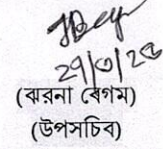 29/0/20
(ঝরনা বেগম)
(উপসচিব)